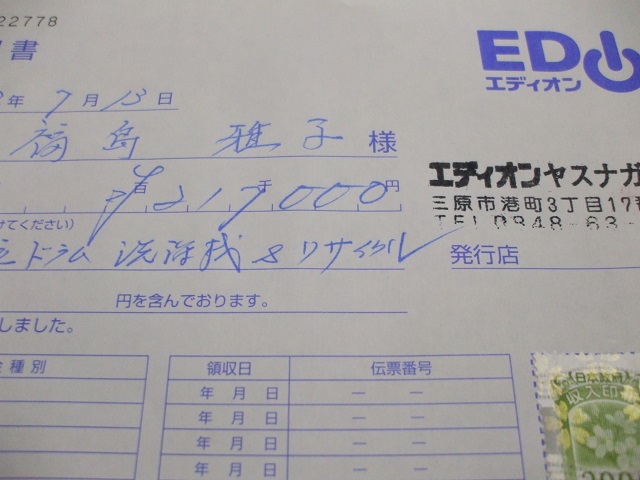 22778
書
EDIO
エディオン
年7月13日
福島 雅子 様
¥217,000円
エディオンヤスナガ
三原市港町3丁目17番
TEL0848-63-
けてください)
ドラム洗濯機&リサイクル
発行店
円を含んでおります。
しました。
金種別
領収日 伝票番号
年 月 日 — —
年 月 日 — —
年 月 日 — —
年 月 日 — —
日本政府
収入印
200